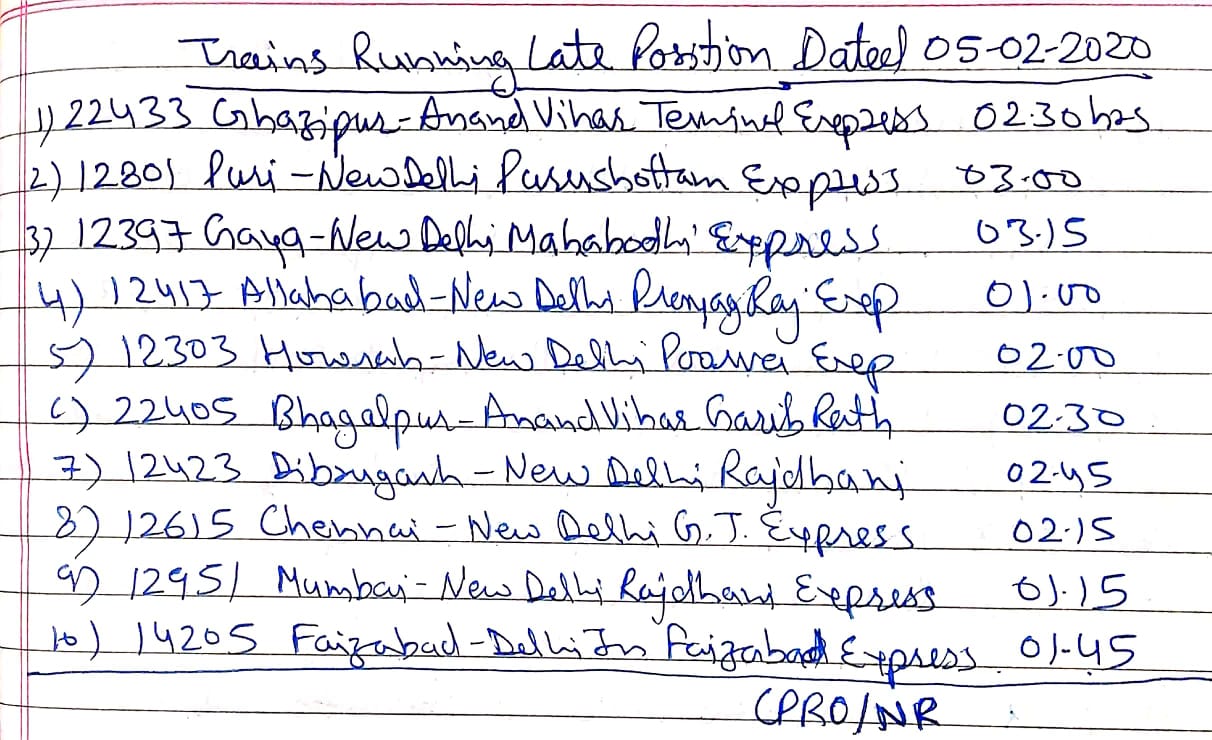 Trains Running Late Position Dated 05-02-2020
1) 22433 Ghazipur-Anand Vihar Terminal Express 02.30hrs
2) 12801 Puri-New Delhi Purushottam Express 03.00
3) 12397 Gaya-New Delhi Mahabodhi Express 03.15
4) 12417 Allahabad-New Delhi Prayag Raj Exp 01.00
5) 12303 Howrah-New Delhi Poorva Exp 02.00
6) 22405 Bhagalpur-Anand Vihar Garib Rath 02.30
7) 12423 Dibrugarh-New Delhi Rajdhani 02.45
8) 12615 Chennai-New Delhi G.T. Express 02.15
9) 12951 Mumbai-New Delhi Rajdhani Express 01.15
10) 14205 Faizabad-Delhi Jn Faizabad Express 01-45
CPRO/NR